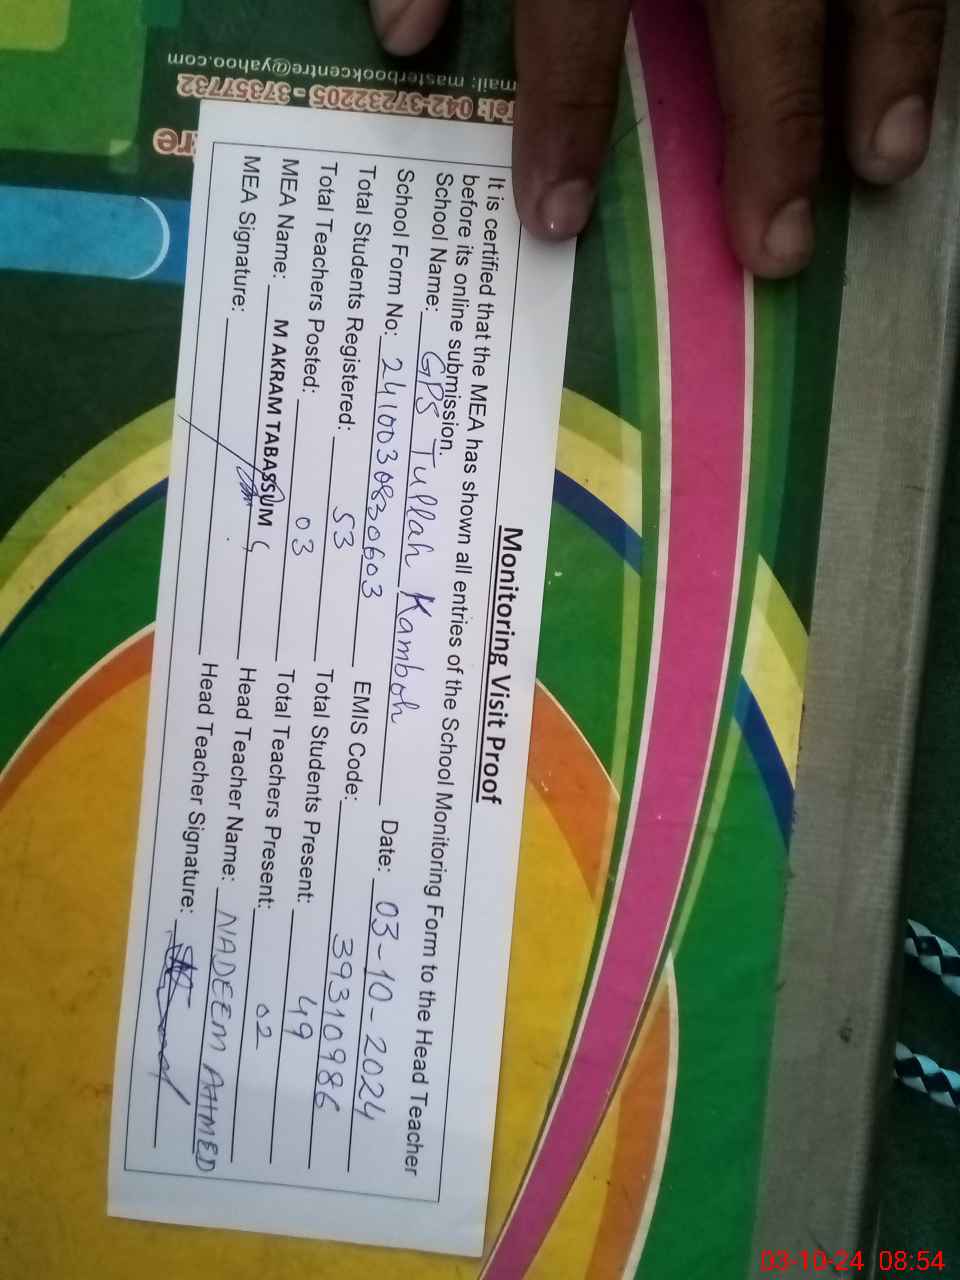 Monitoring Visit Proof
It is certified that the MEA has shown all entries of the School Monitoring Form to the Head Teacher
before its online submission.
School Name: GPS Tullah Kamboh Date: 03-10-2024
School Form No: 2410030830603 EMIS Code: 39310986
Total Students Registered: 53 Total Students Present: 49
Total Teachers Posted: 03 Total Teachers Present: 02
MEA Name: M AKRAM TABASSUM Head Teacher Name: NADEEM AHMED
MEA Signature: Head Teacher Signature:
re
Tel: 042-37232205 - 37357732
mail: masterbookcentre@yahoo.com
03-10-24 08:54